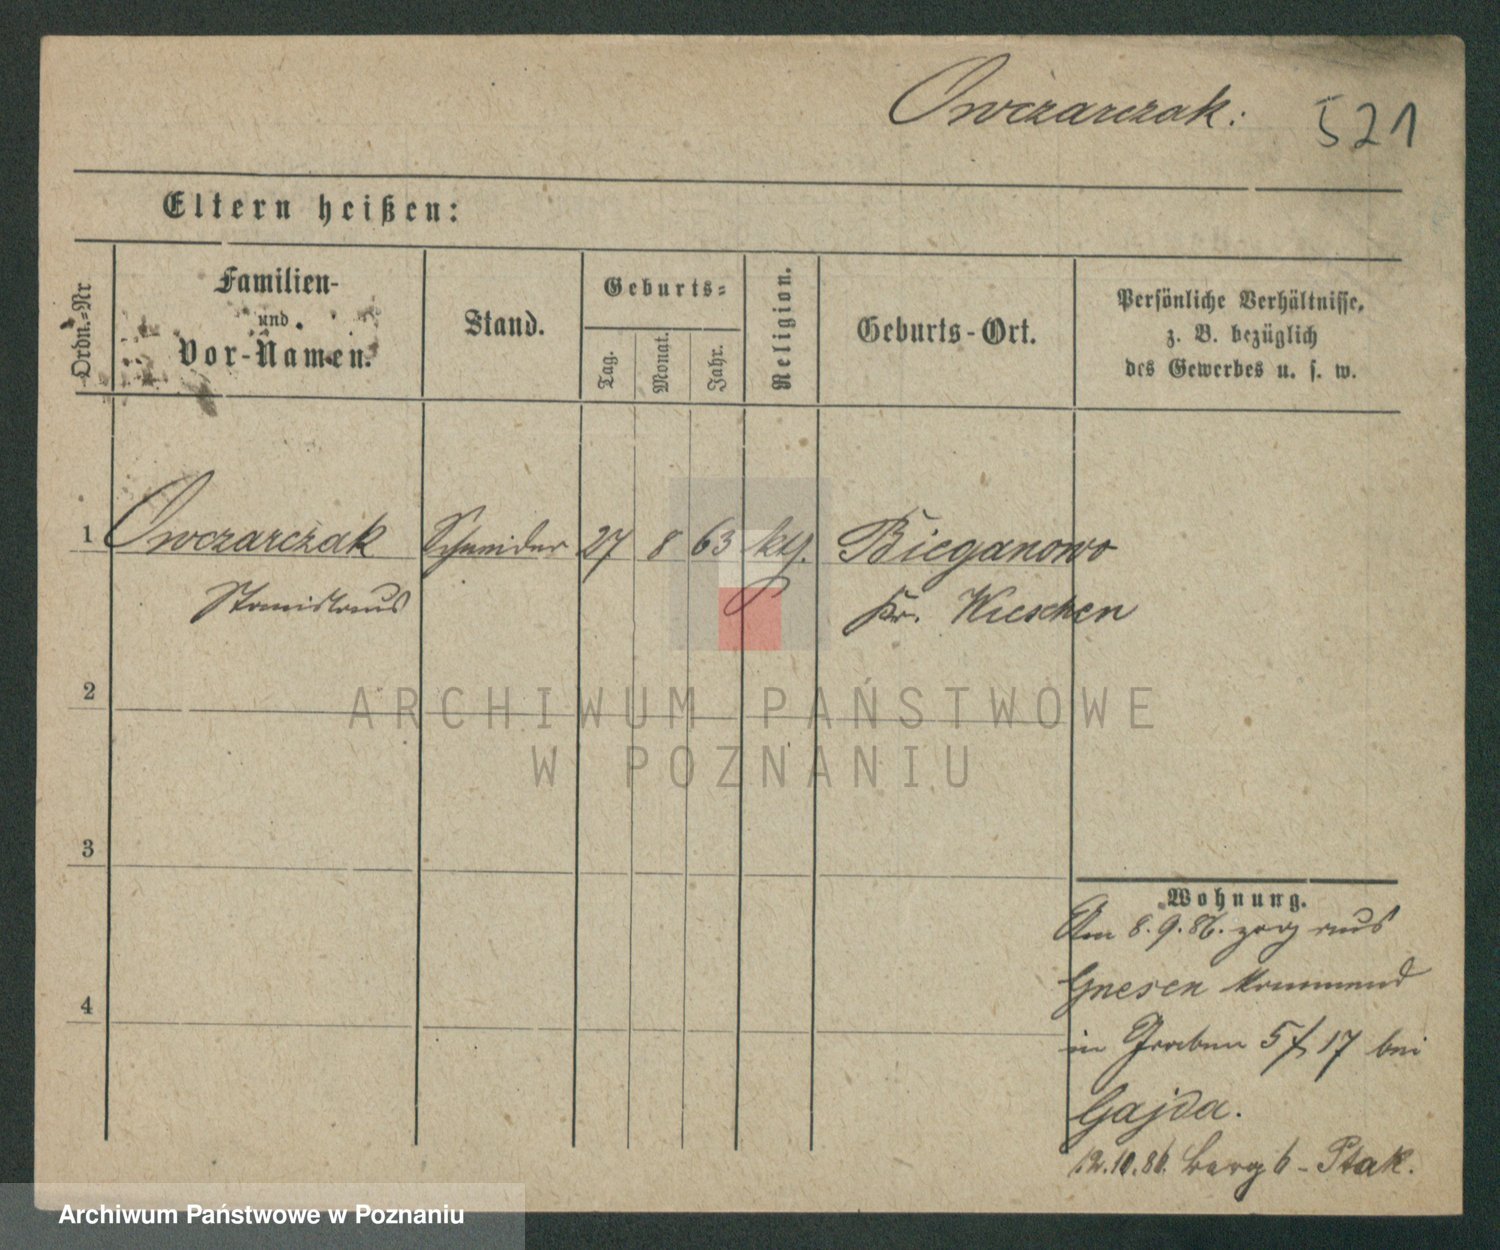 Owczarczak: 521
Eltern heißen:
Ordn.-Nr
Familien-
und
Vor-Namen.
Stand.
Geburts-
Tag.
Monat.
Jahr.
Religion.
Geburts-Ort.
Persönliche Verhältnisse,
z. B. bezüglich
des Gewerbes u. s. w.
1 Owczarczak Schneider 27 8 63 ktg. Bieganowo
Stanislaus Kr. Wreschen
2
3
4
Wohnung.
Am 8.9.86. zog aus
Gnesen kommend
in Graben 5/17 bei
Gajda.
12.10.86. Berg 6 - Ptak.
ARCHIWUM PAŃSTWOWE
W POZNANIU
Archiwum Państwowe w Poznaniu